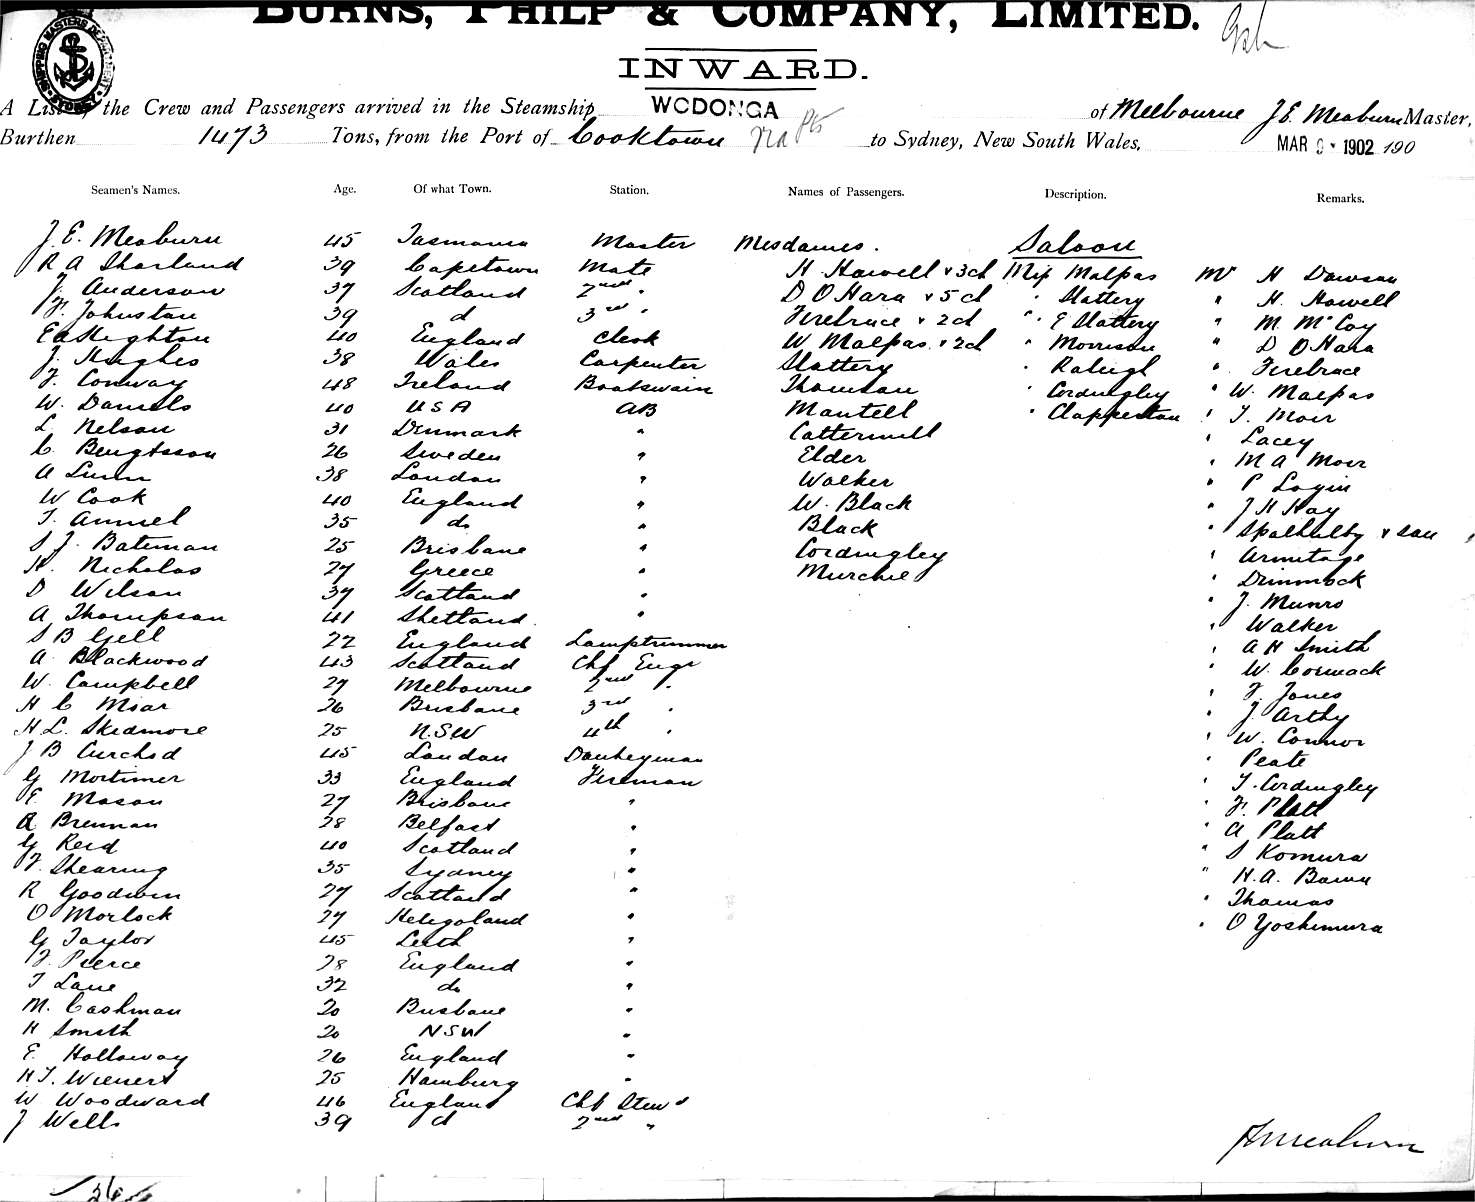 BURNS, PHILP & COMPANY, LIMITED.
INWARD.
SHIPPING MASTERS DEPARTMENT SYDNEY
A List of the Crew and Passengers arrived in the Steamship WODONGA of Melbourne J E Meaburn Master,
Burthen 1473 Tons, from the Port of Cooktown to Sydney, New South Wales, MAR 1902 190
Seamen's Names. Age. Of what Town. Station. Names of Passengers. Description. Remarks.
J. E. Meaburn 45 Tasmania Master Mesdames. Saloon
R A Sharland 39 Capetown Mate H Howell & 3 ch Miss Malpas Mr H Dawson
J. Anderson 37 Scotland 2nd " D O Hara & 5 ch " Slattery " H. Howell
F. Johnston 39 d 3rd " Firebrace & 2 ch " E Slattery " M McCoy
E A Highton 40 England Clerk W Malpas & 2 ch " Morrison " D O Hara
J. Hughes 38 Wales Carpenter Slattery " Raleigh " Firebrace
F. Conway 48 Ireland Boatswain Thomson " Cordingley " W. Malpas
W. Daniels 40 USA AB Mantell " Clapperton " T. Moir
L Nelson 31 Denmark " Cattermull " Lacey
C. Bengtsson 26 Sweden " Elder " M A Moir
A Lunn 38 London " Walker " P Login
W Cook 40 England " W. Black " J H Hay
T. Ammel 35 do " Black " & son
S J. Bateman 25 Brisbane " Cordingley " Armitage
H. Nicholas 27 Greece " Murchie " Dimmock
D Wilson 37 Scotland " " J. Munro
A Thompson 41 Shetland " " Walker
S B Gell 22 England Lamptrimmer " A H Smith
A Blackwood 43 Scotland Chf Engr " W. Cormack
W. Campbell 27 Melbourne 2nd " " F. Jones
H C Moar 26 Brisbane 3rd " " J. Arthy
H L. Skidmore 25 N.S.W 4th " " W. Connor
J B Curchod 45 London Donkeyman " Peate
G Mortimer 33 England Fireman " T. Cordingley
E. Mason 27 Brisbane " " F. Platt
R Brennan 28 Belfast " " A Platt
G Reid 40 Scotland " " S Komura
F. Shearing 35 Sydney " " H. A. Bowe
R Goodwin 27 Scotland " " Thomas
O Morlock 27 Heligoland " " O Yoshimura
G Taylor 45 Leith "
F. Pierce 28 England "
T Lane 32 do "
M. Cashman 20 Brisbane "
H Smith 20 NSW "
E. Holloway 26 England "
H T. Wienert 25 Hamburg "
W Woodward 46 England Chf Stewd
J Wells 39 d 2nd "
J E Meaburn